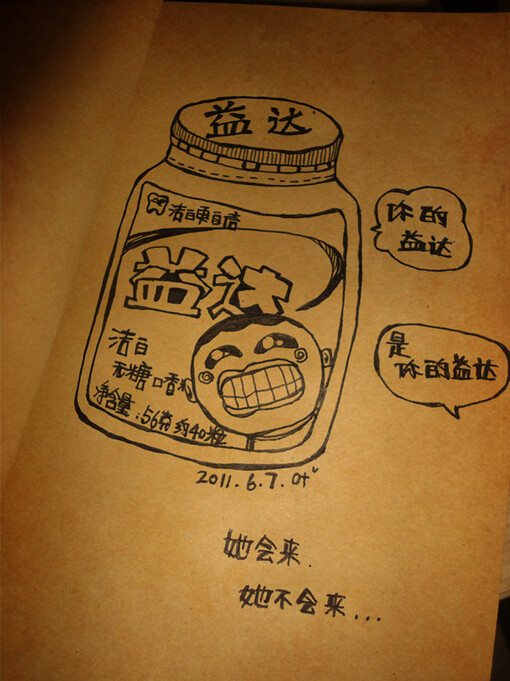 益达
洁白更自信
益达
洁白
无糖口香
净含量:56克约40粒
2011.6.7.
你的
益达
是
你的益达
她会来.
她不会来...